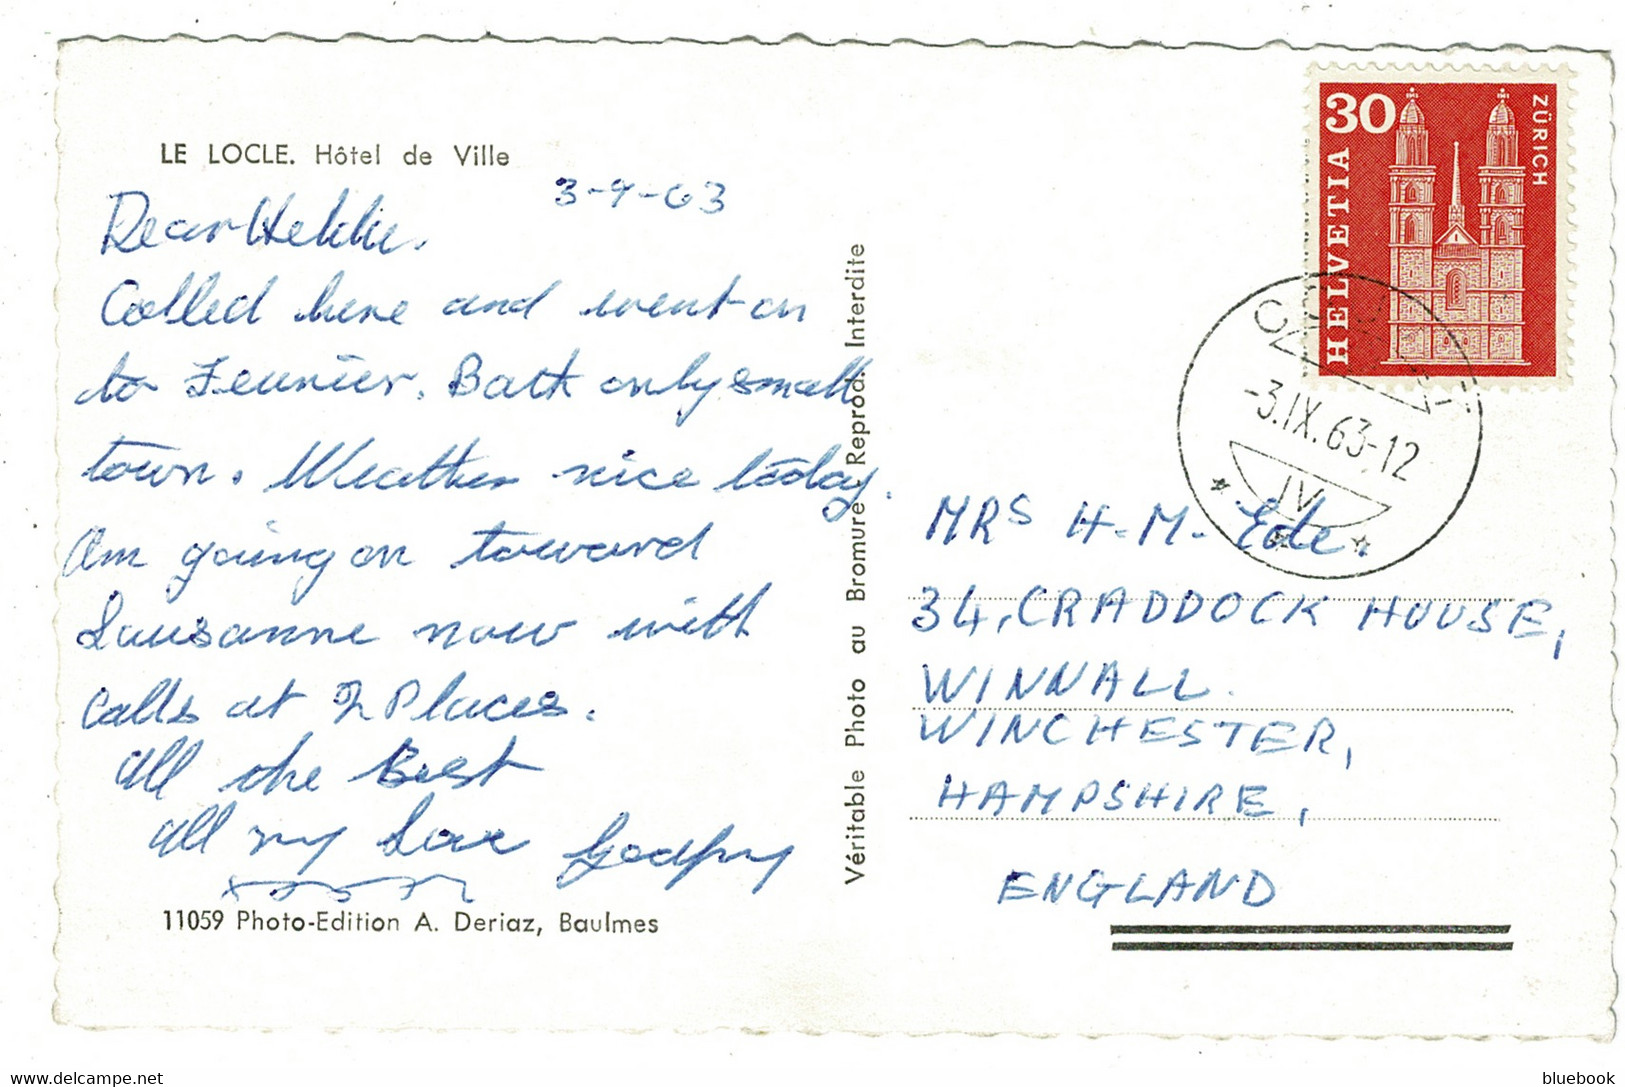 LE LOCLE. Hôtel de Ville
3-9-63
Dear
Called here and went on
to Fleurier. Both only small
town. Weather nice today.
Am going on toward
Lausanne now with
calls at 2 Places.
All the Best
All my Love Godfrey
11059 Photo-Edition A. Deriaz, Baulmes
Véritable Photo au Bromure - Reprod. Interdite
30
HELVETIA
ZÜRICH
-3.IX.63-12
IV
MRS H-M-Ede.
34, CRADDOCK HOUSE,
WINNALL.
WINCHESTER,
HAMPSHIRE,
ENGLAND
bluebook
www.delcampe.net